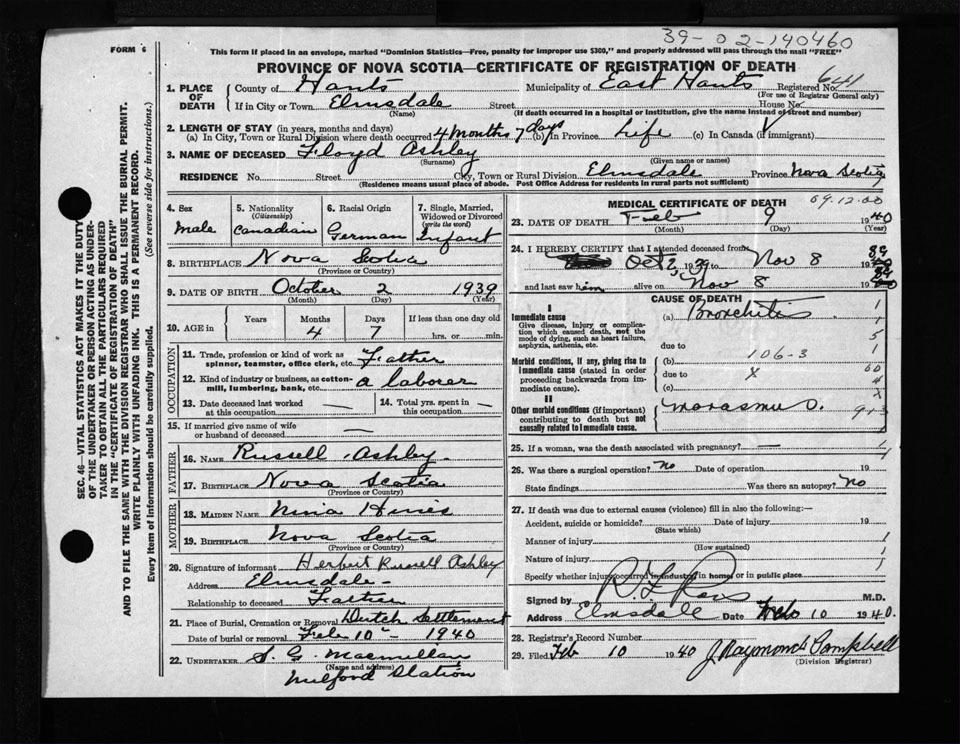 39-02-140460
FORM 6
This form if placed in an envelope, marked "Dominion Statistics—Free, penalty for improper use $300," and properly addressed will pass through the mail "FREE"
PROVINCE OF NOVA SCOTIA—CERTIFICATE OF REGISTRATION OF DEATH
SEC. 46—VITAL STATISTICS ACT MAKES IT THE DUTY
OF THE UNDERTAKER OR PERSON ACTING AS UNDER-
TAKER TO OBTAIN ALL THE PARTICULARS REQUIRED
IN THE "CERTIFICATE OF REGISTRATION OF DEATH"
AND TO FILE THE SAME WITH THE DIVISION REGISTRAR WHO SHALL ISSUE THE BURIAL PERMIT.
WRITE PLAINLY WITH UNFADING INK. THIS IS A PERMANENT RECORD.
Every item of information should be carefully supplied. (See reverse side for instructions.)
1. PLACE OF DEATH County of Hants Municipality of East Hants Registered No. 641
(For use of Registrar General only)
If in City or Town Elmsdale Street House No.
(Name) (If death occurred in a hospital or institution, give the name instead of street and number)
2. LENGTH OF STAY (in years, months and days)
(a) In City, Town or Rural Division where death occurred 4 months 7 days (b) In Province life (c) In Canada (if immigrant)
3. NAME OF DECEASED Floyd Ashley
(Surname) (Given name or names)
RESIDENCE No. Street City, Town or Rural Division Elmsdale Province Nova Scotia
(Residence means usual place of abode. Post Office Address for residents in rural parts not sufficient)
4. Sex male
5. Nationality (Citizenship) Canadian
6. Racial Origin German
7. Single, Married, Widowed or Divorced (write the word) Infant
8. BIRTHPLACE Nova Scotia
(Province or Country)
9. DATE OF BIRTH October 2 1939
(Month) (Day) (Year)
10. AGE in Years Months 4 Days 7 If less than one day old hrs. or min.
OCCUPATION
11. Trade, profession or kind of work as spinner, teamster, office clerk, etc. Father
12. Kind of industry or business, as cotton-mill, lumbering, bank, etc. a laborer
13. Date deceased last worked at this occupation —
14. Total yrs. spent in this occupation —
15. If married give name of wife or husband of deceased
FATHER
16. NAME Russell Ashley
17. BIRTHPLACE Nova Scotia
(Province or Country)
MOTHER
18. MAIDEN NAME Nina Hines
19. BIRTHPLACE Nova Scotia
(Province or Country)
20. Signature of informant Herbert Russell Ashley
Address Elmsdale
Relationship to deceased Father
21. Place of Burial, Cremation or Removal Dutch Settlement
Date of burial or removal Feb 10 - 1940
22. UNDERTAKER S. G. Macmillan
(Name and address)
Milford Station
MEDICAL CERTIFICATE OF DEATH 69.12.00
23. DATE OF DEATH Feb 9 1940
(Month) (Day) (Year)
24. I HEREBY CERTIFY that I attended deceased from
Oct 2 1939 to Nov 8 1939
and last saw him alive on Nov 8 1939
CAUSE OF DEATH
I
Immediate cause
Give disease, injury or complication which caused death, not the mode of dying, such as heart failure, asphyxia, asthenia, etc.
(a) Bronchitis
due to
Morbid conditions, if any, giving rise to immediate cause (stated in order proceeding backwards from immediate cause).
(b) 106-3
due to X
(c)
II
Other morbid conditions (if important) contributing to death but not causally related to immediate cause.
Marasmus
25. If a woman, was the death associated with pregnancy? —
26. Was there a surgical operation? No Date of operation 19
State findings Was there an autopsy? No
27. If death was due to external causes (violence) fill in also the following:—
Accident, suicide or homicide? Date of injury 19
(State which)
Manner of injury
(How sustained)
Nature of injury
Specify whether injury occurred in industry in home, or in public place
Signed by M.D.
Address Elmsdale Date Feb 10 1940.
28. Registrar's Record Number
29. Filed Feb 10 1940 J Raymond Campbell
(Division Registrar)